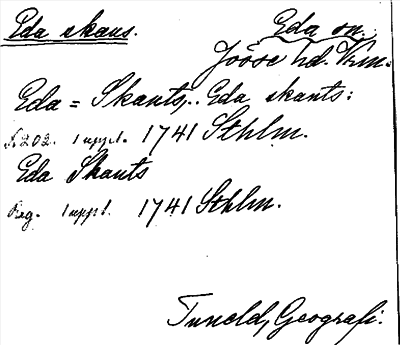 Eda skans.
Eda sn.
Jösse hd. Vrm.
Eda = Skants,.. Eda skants:
S. 202. 1 uppl. 1741 Sthlm.
Eda Skants
Reg. 1 uppl. 1741 Sthlm.
Tuneld, Geografi.